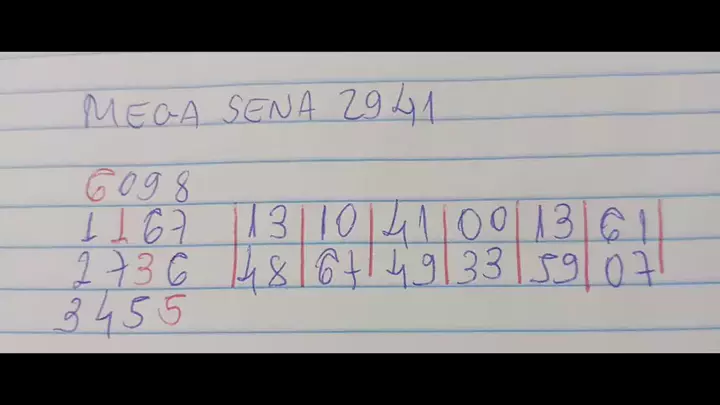 MEGA SENA 2941
6098
1167 13 10 41 00 13 61
2736 48 67 49 33 59 07
3455